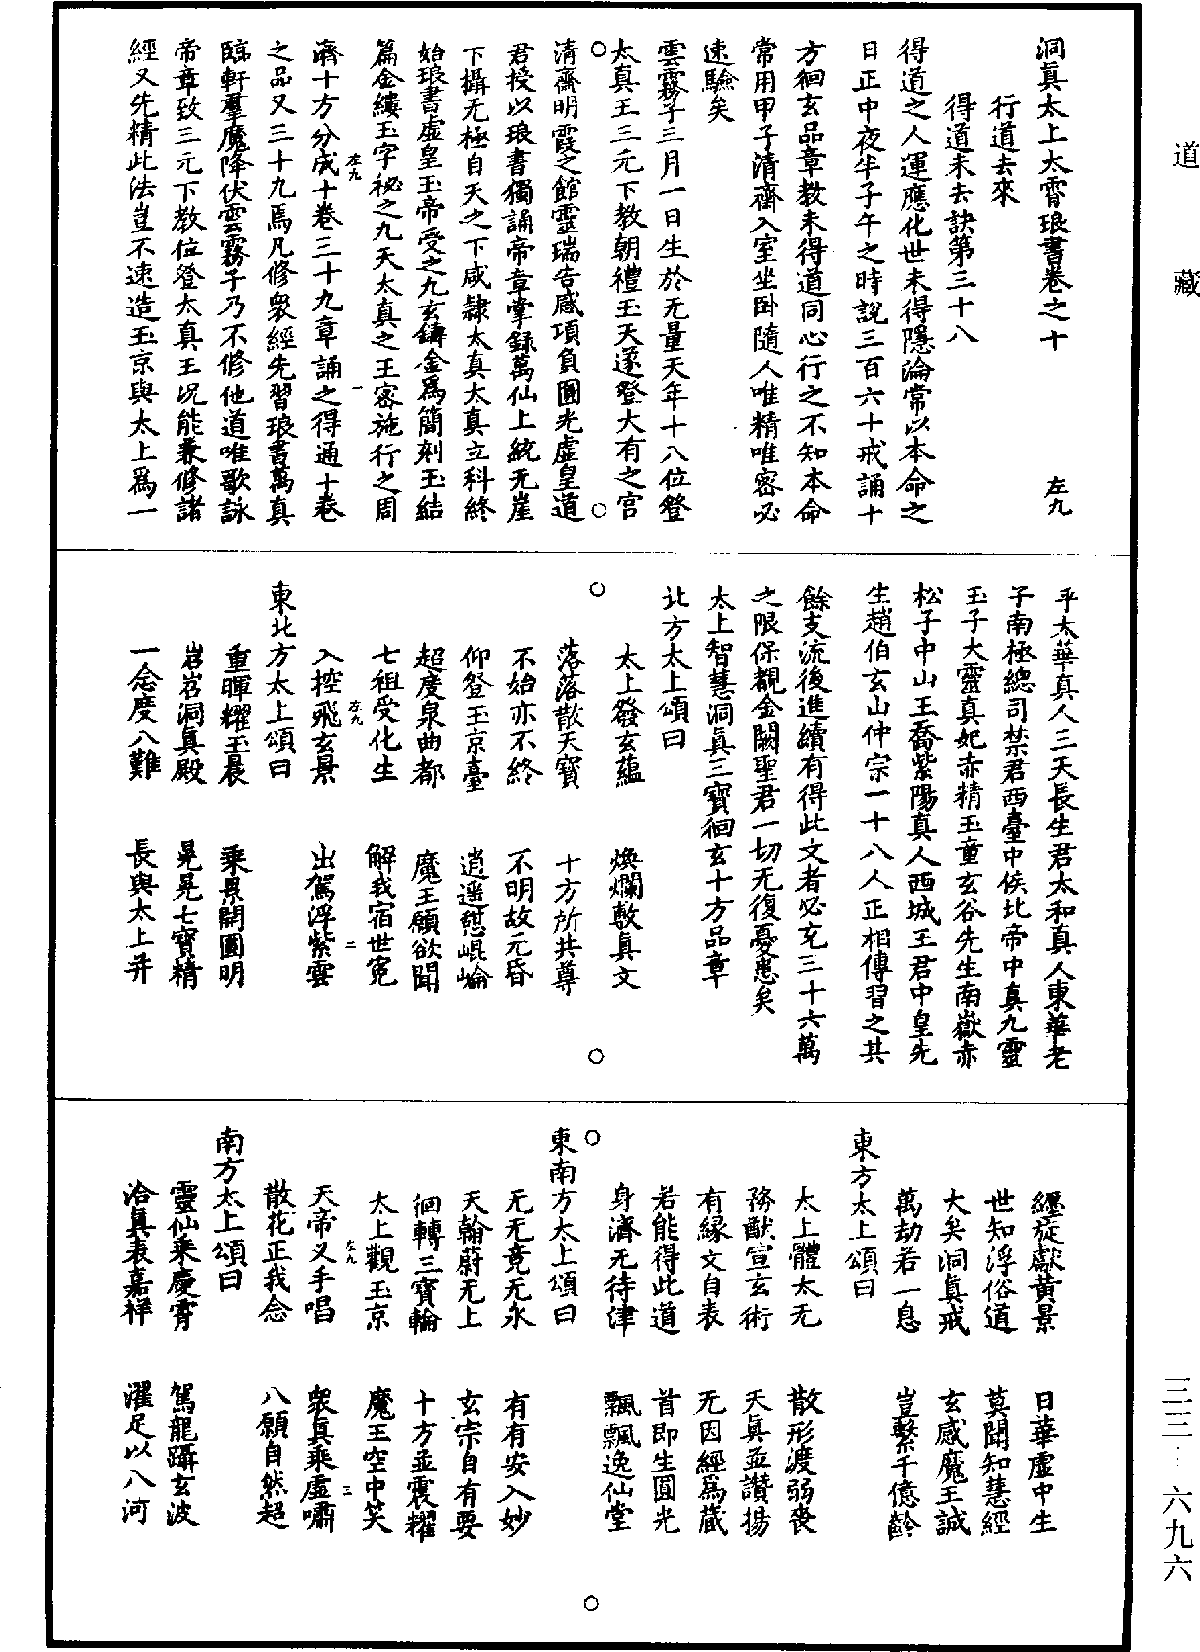 道藏
洞真太上太霄琅書卷之十　左九
行道去來
得道未去訣第三十八
得道之人運應化世未得隱淪常以本命之
日正中夜半子午之時說三百六十戒誦十
方徊玄品章教未得道同心行之不知本命
常用甲子清齋入室坐卧隨人唯精唯密必
速驗矣
雲霧子三月一日生於无量天年十八位登
太真王三元下教朝禮玉天遂登大有之宮
清齋明霞之館靈瑞告感項負圓光虛皇道
君授以琅書獨誦帝章掌錄萬仙上統无崖
下攝无極自天之下咸隸太真太真立科終
始琅書虛皇玉帝受之九玄鑄金爲簡刻玉結
篇金縷玉字祕之九天太真之王密施行之周
濟十方分成十卷三十九章誦之得通十卷
左九　一
之品又三十九焉凡修衆經先習琅書萬真
臨軒羣魔降伏雲霧子乃不修他道唯歌詠
帝章致三元下教位登太真王況能兼修諸
經又先精此法豈不速造玉京與太上爲一
乎太華真人三天長生君太和真人東華老
子南極總司禁君西臺中侯北帝中真九靈
玉子大靈真妃赤精玉童玄谷先生南嶽赤
松子中山王喬紫陽真人西城王君中皇先
生趙伯玄山仲宗一十八人正相傳習之其
餘支流後進續有得此文者必充三十六萬
之限保覩金闕聖君一切无復憂患矣
太上智慧洞真三寶徊玄十方品章
北方太上頌曰
太上發玄蘊　煥爛敷真文
落落散天寶　十方所共尊
不始亦不終　不明故元昏
仰登玉京臺　逍遥憩崐崘
超度泉曲都　魔王願欲聞
七祖受化生　解我宿世冤
入控飛玄景　出駕浮紫雲
左九　二
東北方太上頌曰
重暉耀玉晨　乘景開圓明
岧岧洞真殿　晃晃七寶精
一念度八難　長與太上并
經旋獻黄景　日華虛中生
世知浮俗道　莫聞知慧經
大矣洞真戒　玄感魔王誠
萬劫若一息　豈繫千億齡
東方太上頌曰
太上體太无　散形渡弱喪
務猷宣玄術　天真並讚揚
有緣文自表　无因經爲藏
若能得此道　首即生圓光
身濟无待津　飄飄逸仙堂
東南方太上頌曰
无无竟无永　有有安入妙
天翰蔚无上　玄宗自有要
徊轉三寶輪　十方並震耀
太上觀玉京　魔王空中笑
天帝叉手唱　衆真乘虛嘯
左九　三
散花正我念　八願自然超
南方太上頌曰
靈仙乘慶霄　駕龍躡玄波
洽真表嘉祥　濯足以八河
三三·六九六